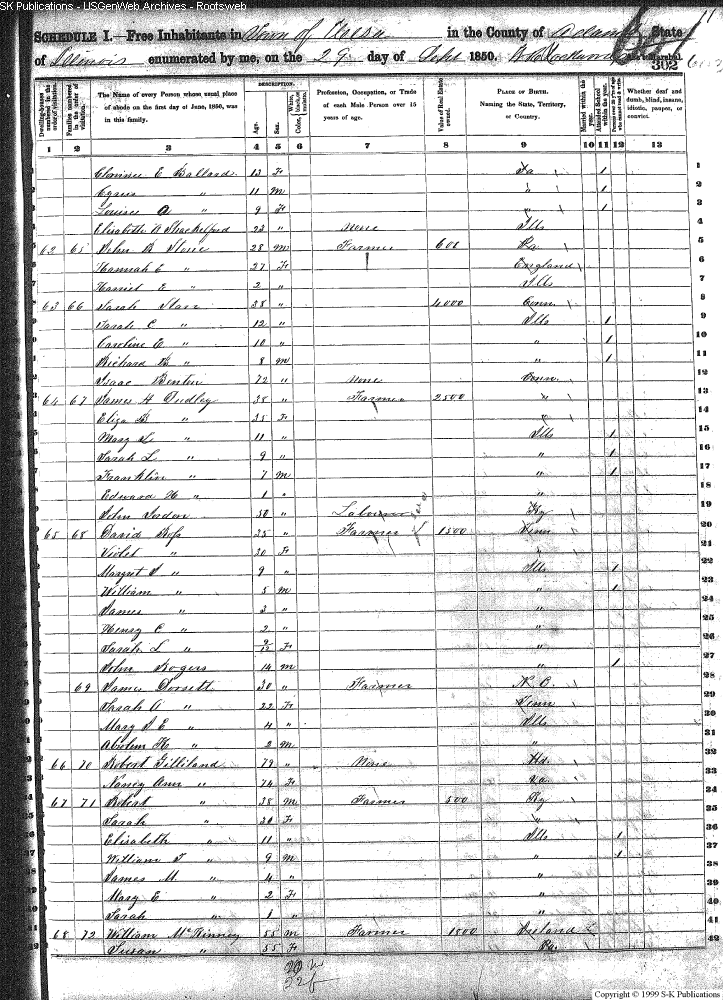 SK Publications - USGenWeb Archives - Rootsweb
SCHEDULE I.—Free Inhabitants in Town of Ursa in the County of Adams State
of Illinois enumerated by me, on the 29 day of Sept 1850.
302
DESCRIPTION.
Dwelling-houses numbered in the order of visitation.
Families numbered in the order of visitation.
The Name of every Person whose usual place of abode on the first day of June, 1850, was in this family.
Age.
Sex.
Color, White, black, or mulatto.
Profession, Occupation, or Trade of each Male Person over 15 years of age.
Value of Real Estate owned.
PLACE OF BIRTH. Naming the State, Territory, or Country.
Married within the year.
Attended School within the year.
Persons over 20 y'rs of age who cannot read & write.
Whether deaf and dumb, blind, insane, idiotic, pauper, or convict.
1 2 3 4 5 6 7 8 9 10 11 12 13
E Ballard 13 F 1
Cyrus " 11 m " 1
Louisa A " 9 F " 1
Elisabeth Shackelford 23 " None Ills
62 65 John B 28 m Farmer 600 Pa
Hannah E " 27 F England
Harriet E " 2 " Ills
63 66 Sarah Starr 38 " 4000 Conn
Sarah C " 12 " Ills 1
Caroline E " 10 " " 1
Richard B " 8 m " 1
Isaac Benton 72 " None Conn
64 67 James H Dudley 38 " Farmer 2500 "
Eliza B " 35 F "
Mary " 11 " Ills 1
Sarah L " 9 " " 1
Franklin " 7 m " 1
Edward H " 1 " "
John 30 " Laborer Ky
65 68 David Ross 35 " Farmer 1500
Violet " 30 F "
Margret " 9 " Ills 1
William " 5 m " 1
James " 3 " "
Henry C " 2 " "
Sarah L " 9/12 F "
John Rogers 14 m " 1
69 James Dorsett 30 " Farmer N.C.
Sarah A " 22 F Tenn
Mary E " 4 " Ills
H " 2 m "
66 70 Robert Gilliland 79 " None Md.
Nancy Ann " 74 F Va
67 71 Robert " 38 m Farmer 500 Ky
Sarah " 30 F "
Elisabeth " 11 " Ills 1
William T " 9 m " 1
James M " 4 " "
Mary E " 2 F "
Sarah " 1 " "
68 72 William McKinney 55 m Farmer 1800 Ireland
Susan " 55 F Pa
20 m
22 f
Copyright © 1999 S-K Publications